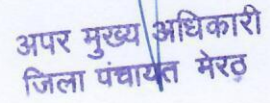 अपर मुख्य अधिकारी
जिला पंचायत मेरठ